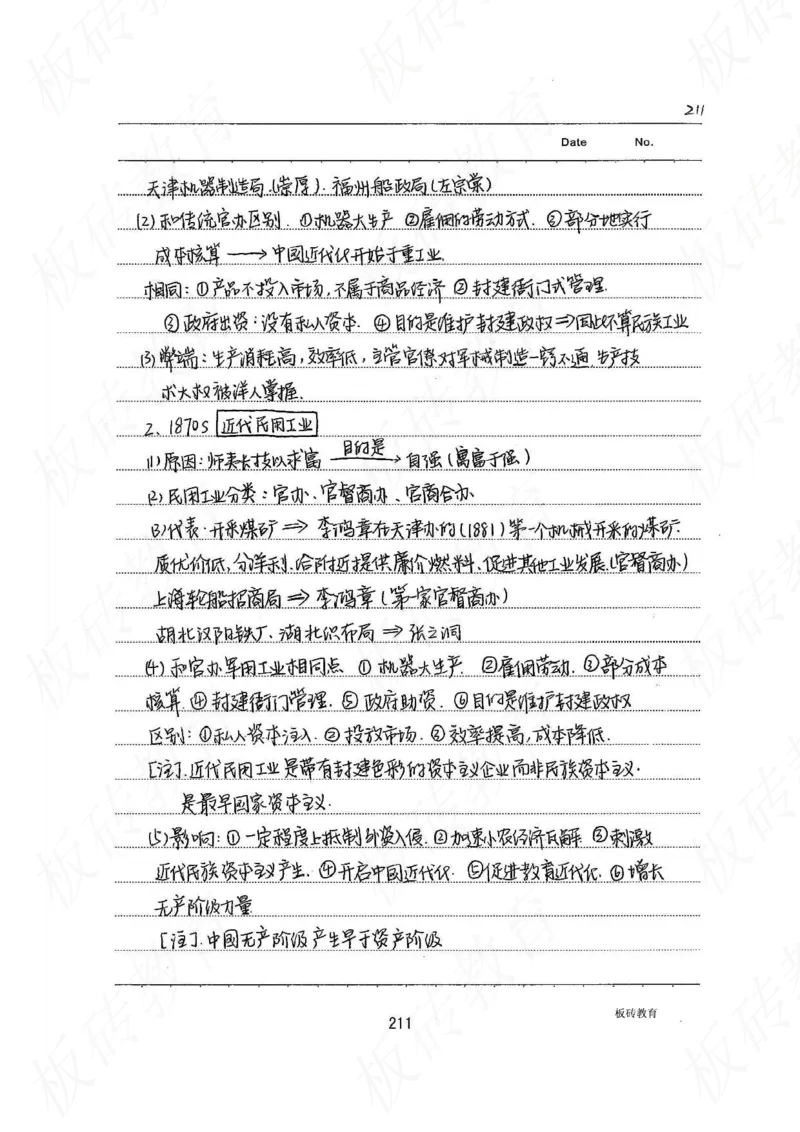 211
Date No.
天津机器制造局(崇厚). 福州船政局(左宗棠)
(2)和传统官办区别. ①机器大生产 ②雇佣的劳动方式. ③部分地实行
成本核算 → 中国近代化开始于重工业.
相同:①产品不投入市场,不属于商品经济 ②封建衙门式管理.
③政府出资:没有私人资本. ④目的是维护封建政权⇒因此不算民族工业
(3)弊端:生产消耗高,效率低,主管官僚对军械制造一窍不通.生产技
术大权被洋人掌握.
2、1870s 近代民用工业
(1)原因:师夷长技以求富 目的是→ 自强(寓富于强)
(2)民用工业分类:官办、官督商办、官商合办
(3)代表·开采煤矿⇒ 李鸿章在天津办的(1881)第一个机械开采的煤矿.
质优价低,分洋利.给附近提供廉价燃料、促进其他工业发展.(官督商办)
上海轮船招商局⇒李鸿章(第一家官督商办)
湖北汉阳铁厂、湖北织布局⇒张之洞
(4)和官办军用工业相同点 ①机器大生产 ②雇佣劳动.③部分成本
核算.④封建衙门管理.⑤政府助资.⑥目的是维护封建政权
区别:①私人资本注入.②投放市场.③效率提高,成本降低.
[注].近代民用工业是带有封建色彩的资本主义企业而非民族资本主义.
是最早国家资本主义.
(5)影响:①一定程度上抵制外资入侵.②加速小农经济瓦解 ③刺激
近代民族资本主义产生.④开启中国近代化.⑤促进教育近代化.⑥增长
无产阶级力量
[注].中国无产阶级产生早于资产阶级
211
板砖教育